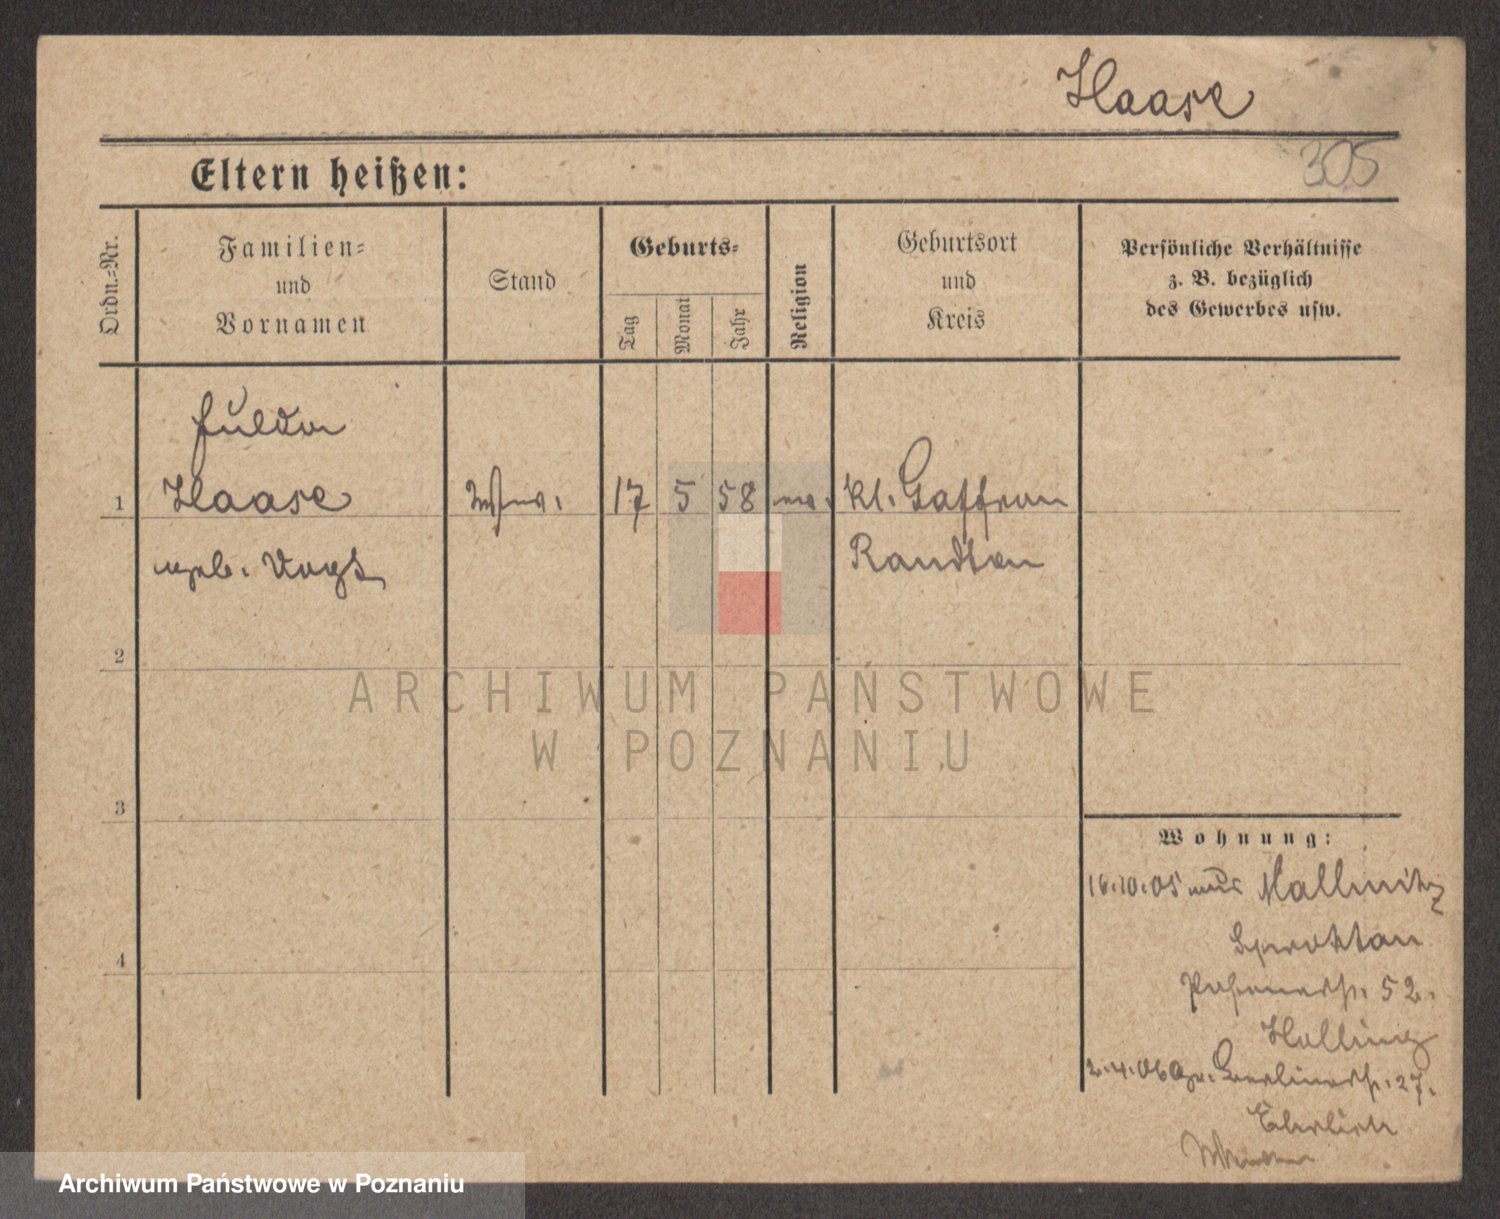 Haase
305
Eltern heißen:
Ordn.=Nr.
Familien=
und
Vornamen
Stand
Geburts=
Tag
Monat
Jahr
Religion
Geburtsort
und
Kreis
Persönliche Verhältnisse
z. B. bezüglich
des Gewerbes usw.
Hulda
1 Haase Wwe. 17 5 58 ev. Kl. Gaffron
geb. Vogt Raudten
2
ARCHIWUM PAŃSTWOWE
W POZNANIU
3
Wohnung:
16.10.05 aus Mallmitz
Sprottau
4
Posenerstr. 52.
2.4.06 Gr. Berlinerstr. 27.
Ehrlich
Archiwum Państwowe w Poznaniu